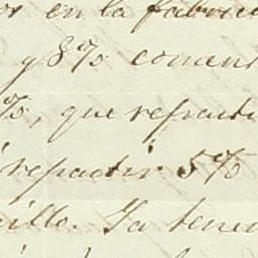 en la fabric
y 8% coment
%, que refracti
repartir 5%
illo. Ya tene